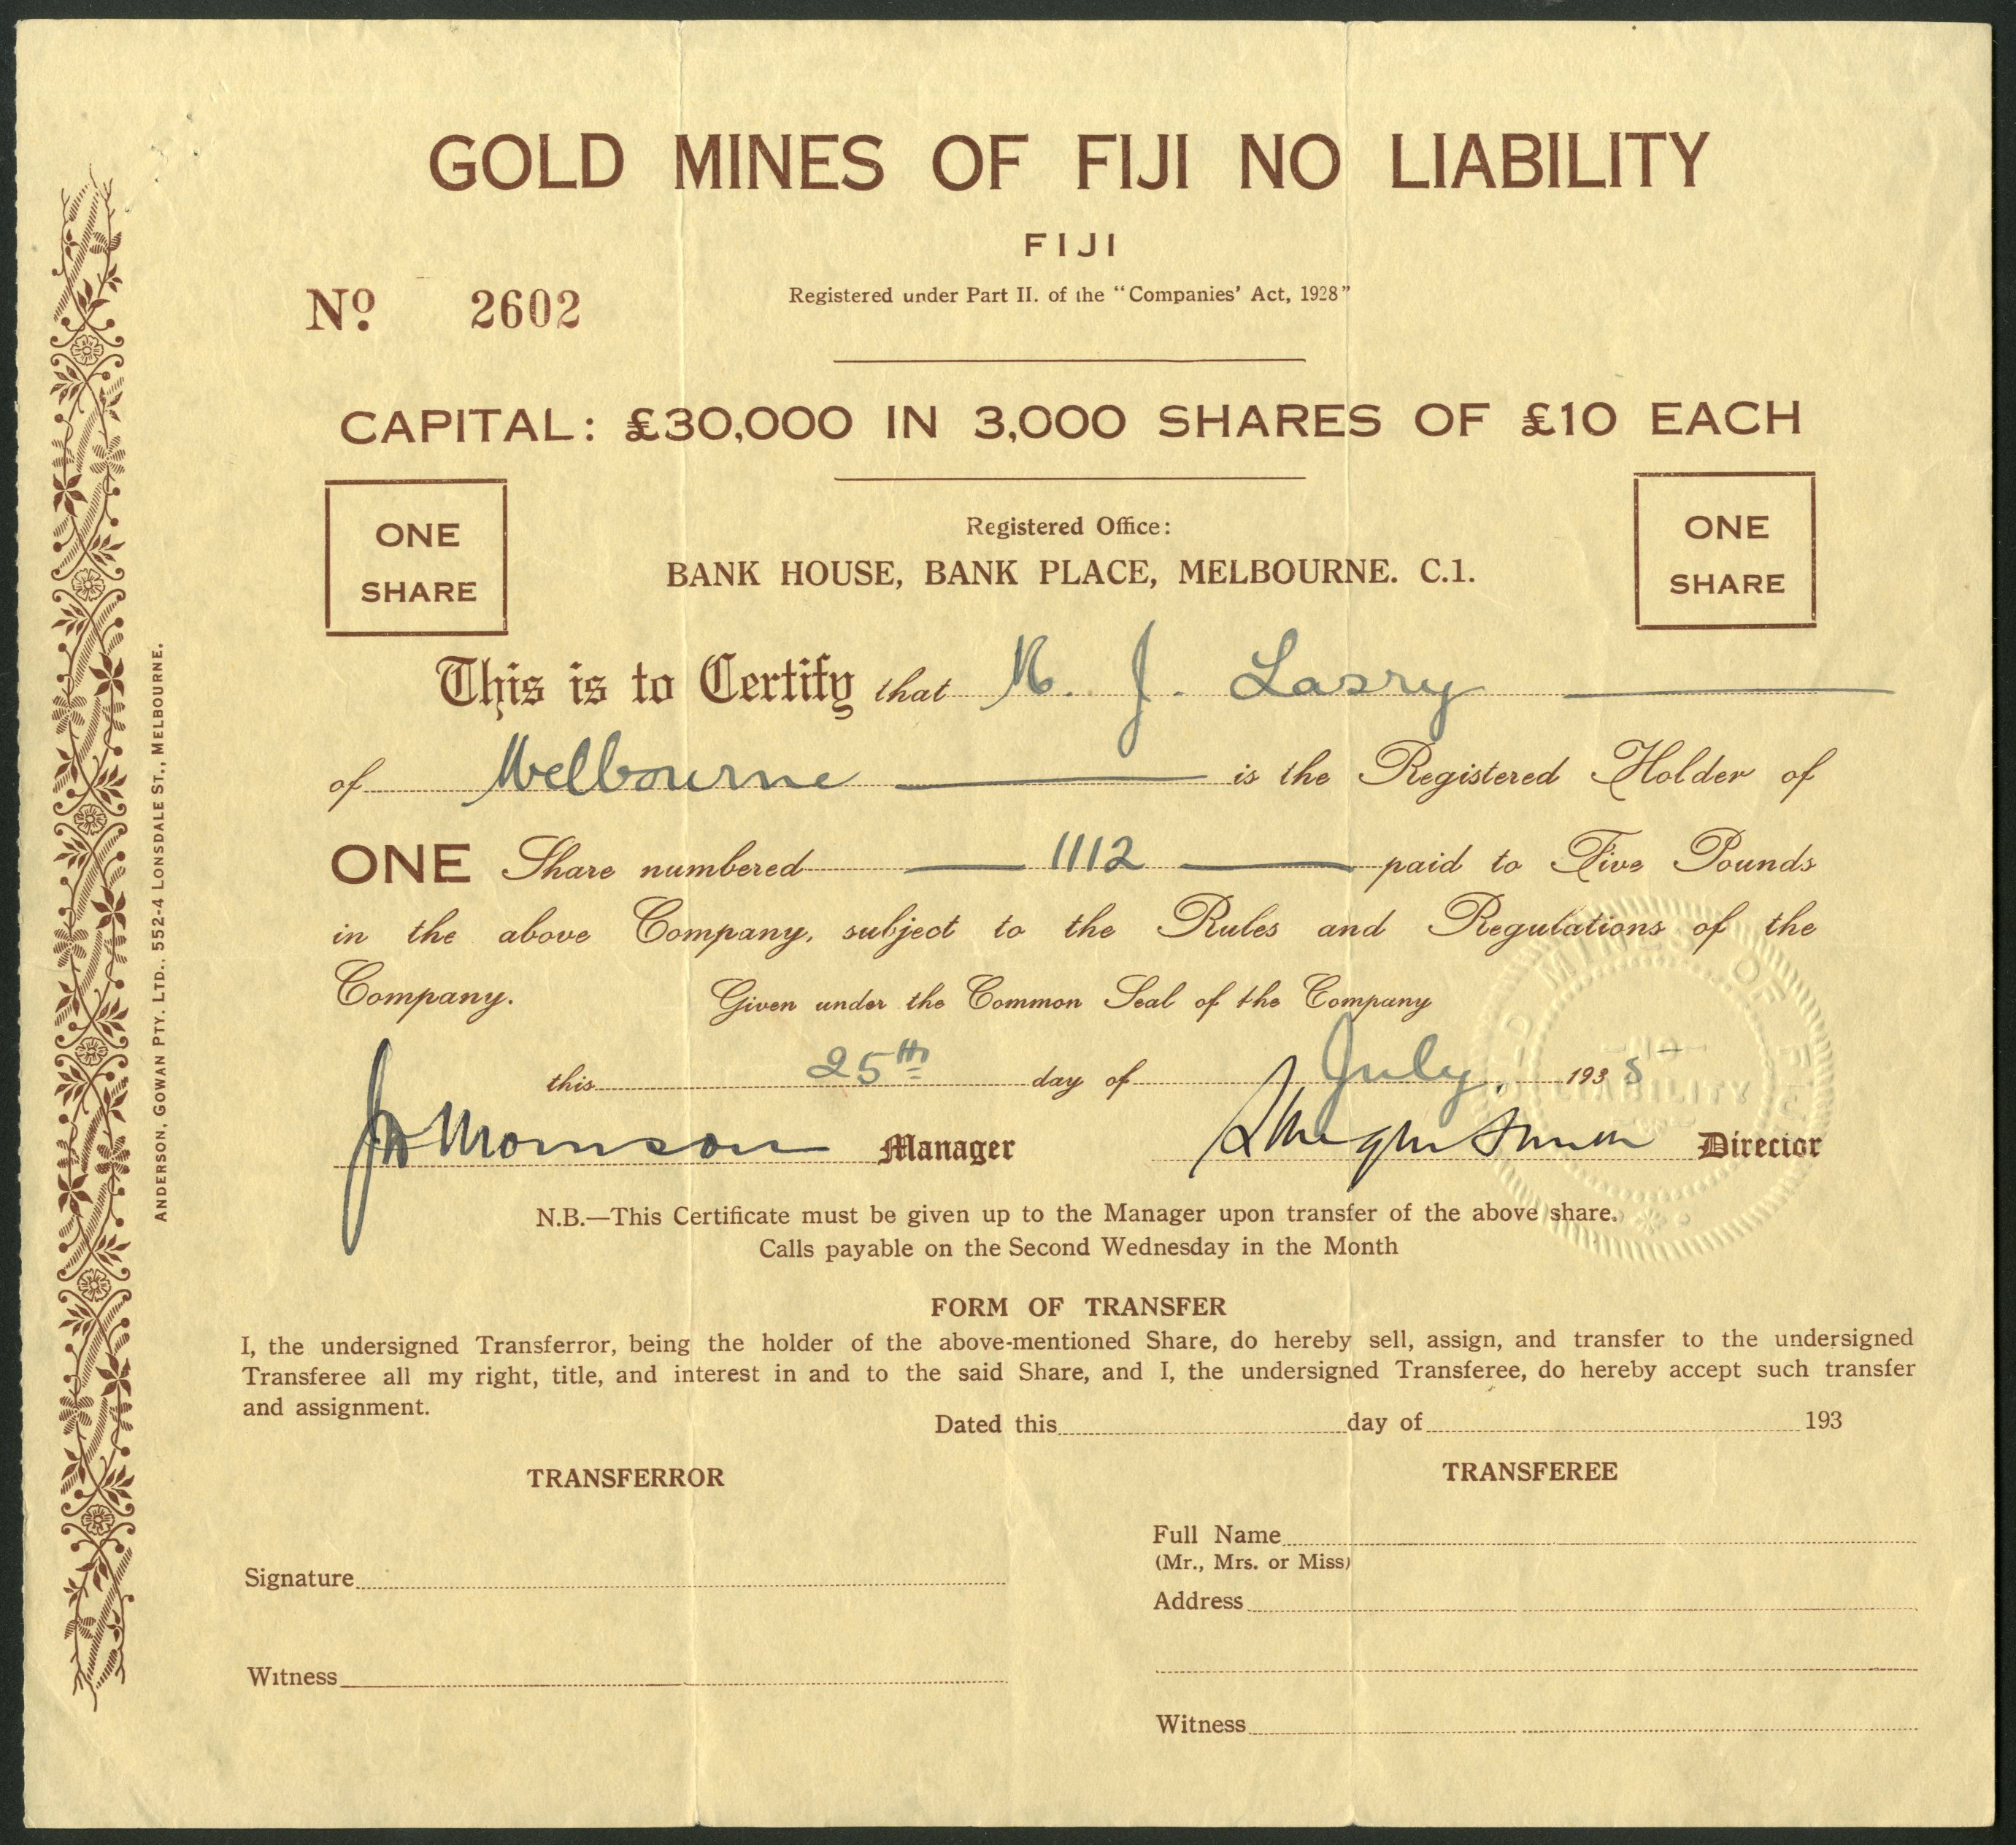 GOLD MINES OF FIJI NO LIABILITY
FIJI
Nº 2602
Registered under Part II. of the "Companies' Act, 1928"
CAPITAL: £30,000 IN 3,000 SHARES OF £10 EACH
ONE
SHARE
Registered Office:
BANK HOUSE, BANK PLACE, MELBOURNE. C.1.
ONE
SHARE
This is to Certify that J. Lasry
of Melbourne is the Registered Holder of
ONE Share numbered 1112 paid to Five Pounds
in the above Company, subject to the Rules and Regulations of the
Company. Given under the Common Seal of the Company
this 25th day of July, 1935
Manager
Director
GOLD MINES OF FIJI
NO
LIABILITY
N.B.—This Certificate must be given up to the Manager upon transfer of the above share.
Calls payable on the Second Wednesday in the Month
FORM OF TRANSFER
I, the undersigned Transferror, being the holder of the above-mentioned Share, do hereby sell, assign, and transfer to the undersigned
Transferee all my right, title, and interest in and to the said Share, and I, the undersigned Transferee, do hereby accept such transfer
and assignment.
Dated this day of 193
TRANSFERROR
TRANSFEREE
Full Name
(Mr., Mrs. or Miss)
Signature
Address
Witness
Witness
ANDERSON, GOWAN PTY. LTD., 552-4 LONSDALE ST., MELBOURNE.